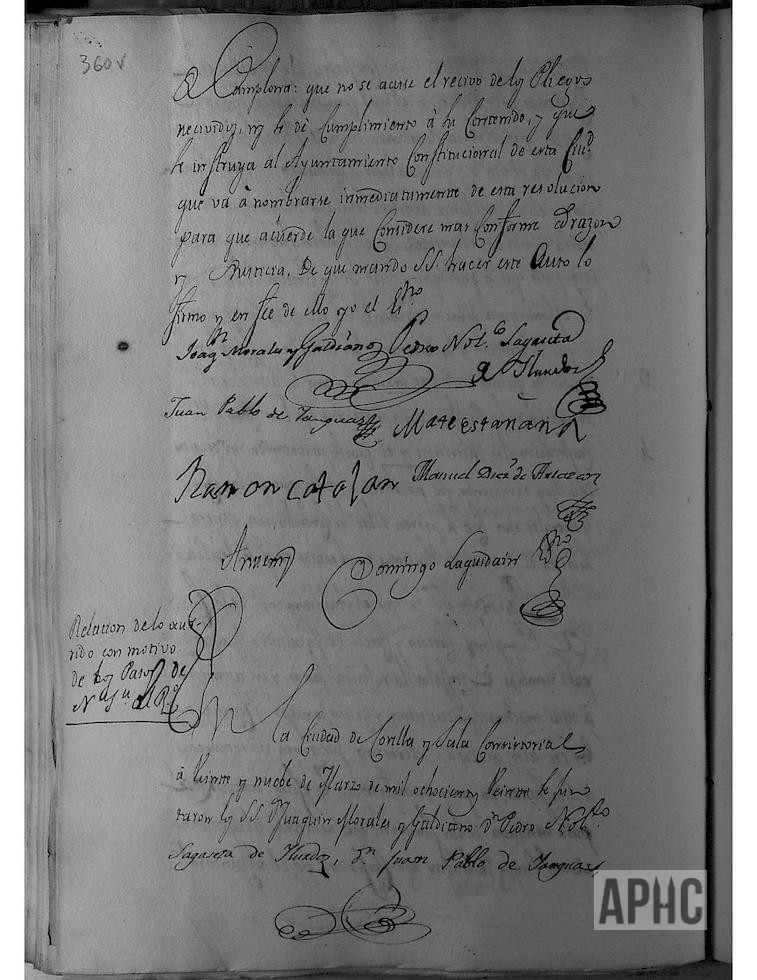 360 v
Pamplona: que no se acuse el recivo de los Pliegos
recividos, ni se dè cumplimiento à su Contenido, y que
se instruya al Ayuntamiento Constitucional de esta Ciud.
que va à nombrarse inmediatamente de esta resolucion
para que acuerde la que Considere mas Conforme à razon
y Justicia. De que mando SS. hacer este Auto lo
firmo y en fee de ello yo el Ess.no
Joaqn Morales y Galdiano Pedro Nol.co Sagaseta
de Ilurdoz
Juan Pablo de Tanguas
Mateo
Ramon Catalan Manuel Diaz de
Ante mi
Domingo Laquidain Ess.no
Relacion de lo ocur-
rido con motivo
de los Pasos de
Nª Sª
En la Ciudad de Corella y Sala Consistorial
à Veinte y nuebe de Marzo de mil ochocientos Veinte se jun
taron los SS. Dn Juaquin Morales y Galdiano dn Pedro Nol.co
Sagaseta de Ilurdoz, dn Juan Pablo de Tanguas
APHC